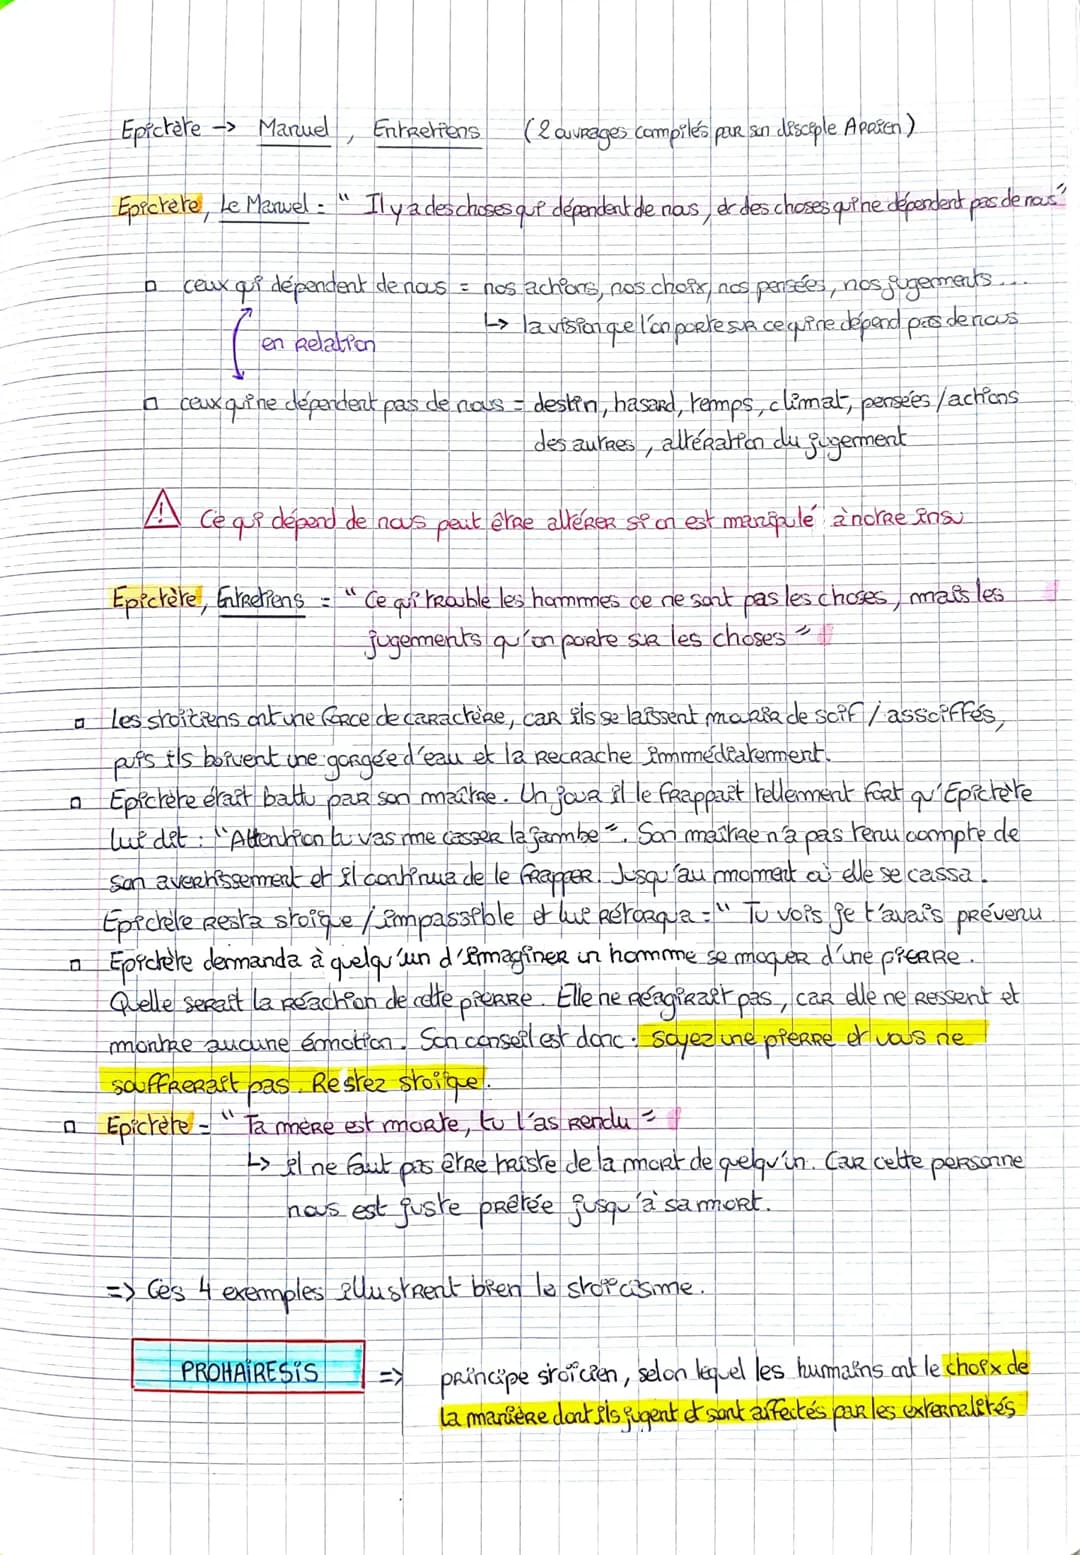 Epictète -> Manuel, Entretiens (2 ouvrages compilés par son disciple Arrien)
Epictete, Le Manuel = " Il y a des choses qui dépendent de nous, et des choses qui ne dépendent pas de nous"
ceux qui dépendent de nous = nos actions, nos choix, nos pensées, nos jugements...
↳ la vision que l'on porte sur ce qui ne dépend pas de nous
en relation
ceux qui ne dépendent pas de nous = destin, hasard, temps, climat, pensées/actions
des autres, altération du jugement
⚠ Ce qui dépend de nous peut être altérer si on est manipulé à notre insu
Epictète, Entretiens = " Ce qui trouble les hommes ce ne sont pas les choses, mais les
jugements qu'on porte sur les choses "
Les stoïciens ont une force de caractère, car ils se laissent mourir de soif / assoiffés,
puis ils boivent une gorgée d'eau et la recrache immédiatement.
Epictète était battu par son maître. Un jour il le frappait tellement fort qu'Epictète
lui dit : "Attention tu vas me casser la jambe". Son maître n'a pas tenu compte de
son avertissement et il continua de le frapper. Jusqu'au moment où elle se cassa.
Epictète resta stoïque / impassible et lui rétorqua = " Tu vois je t'avais prévenu
Epictète demanda à quelqu'un d'imaginer un homme se moquer d'une pierre.
Quelle serait la réaction de cette pierre. Elle ne réagirait pas, car elle ne ressent et
montre aucune émotion. Son conseil est donc : soyez une pierre et vous ne
souffrerait pas. Restez stoïque.
Epictète = " Ta mère est morte, tu l'as rendu "
↳ il ne faut pas être triste de la mort de quelqu'un. Car cette personne
nous est juste prêtée jusqu'à sa mort.
=> Ces 4 exemples illustrent bien le stoïcisme.
PROHAÏRESIS => principe stoïcien, selon lequel les humains ont le choix de
la manière dont ils jugent et sont affectés par les externalités